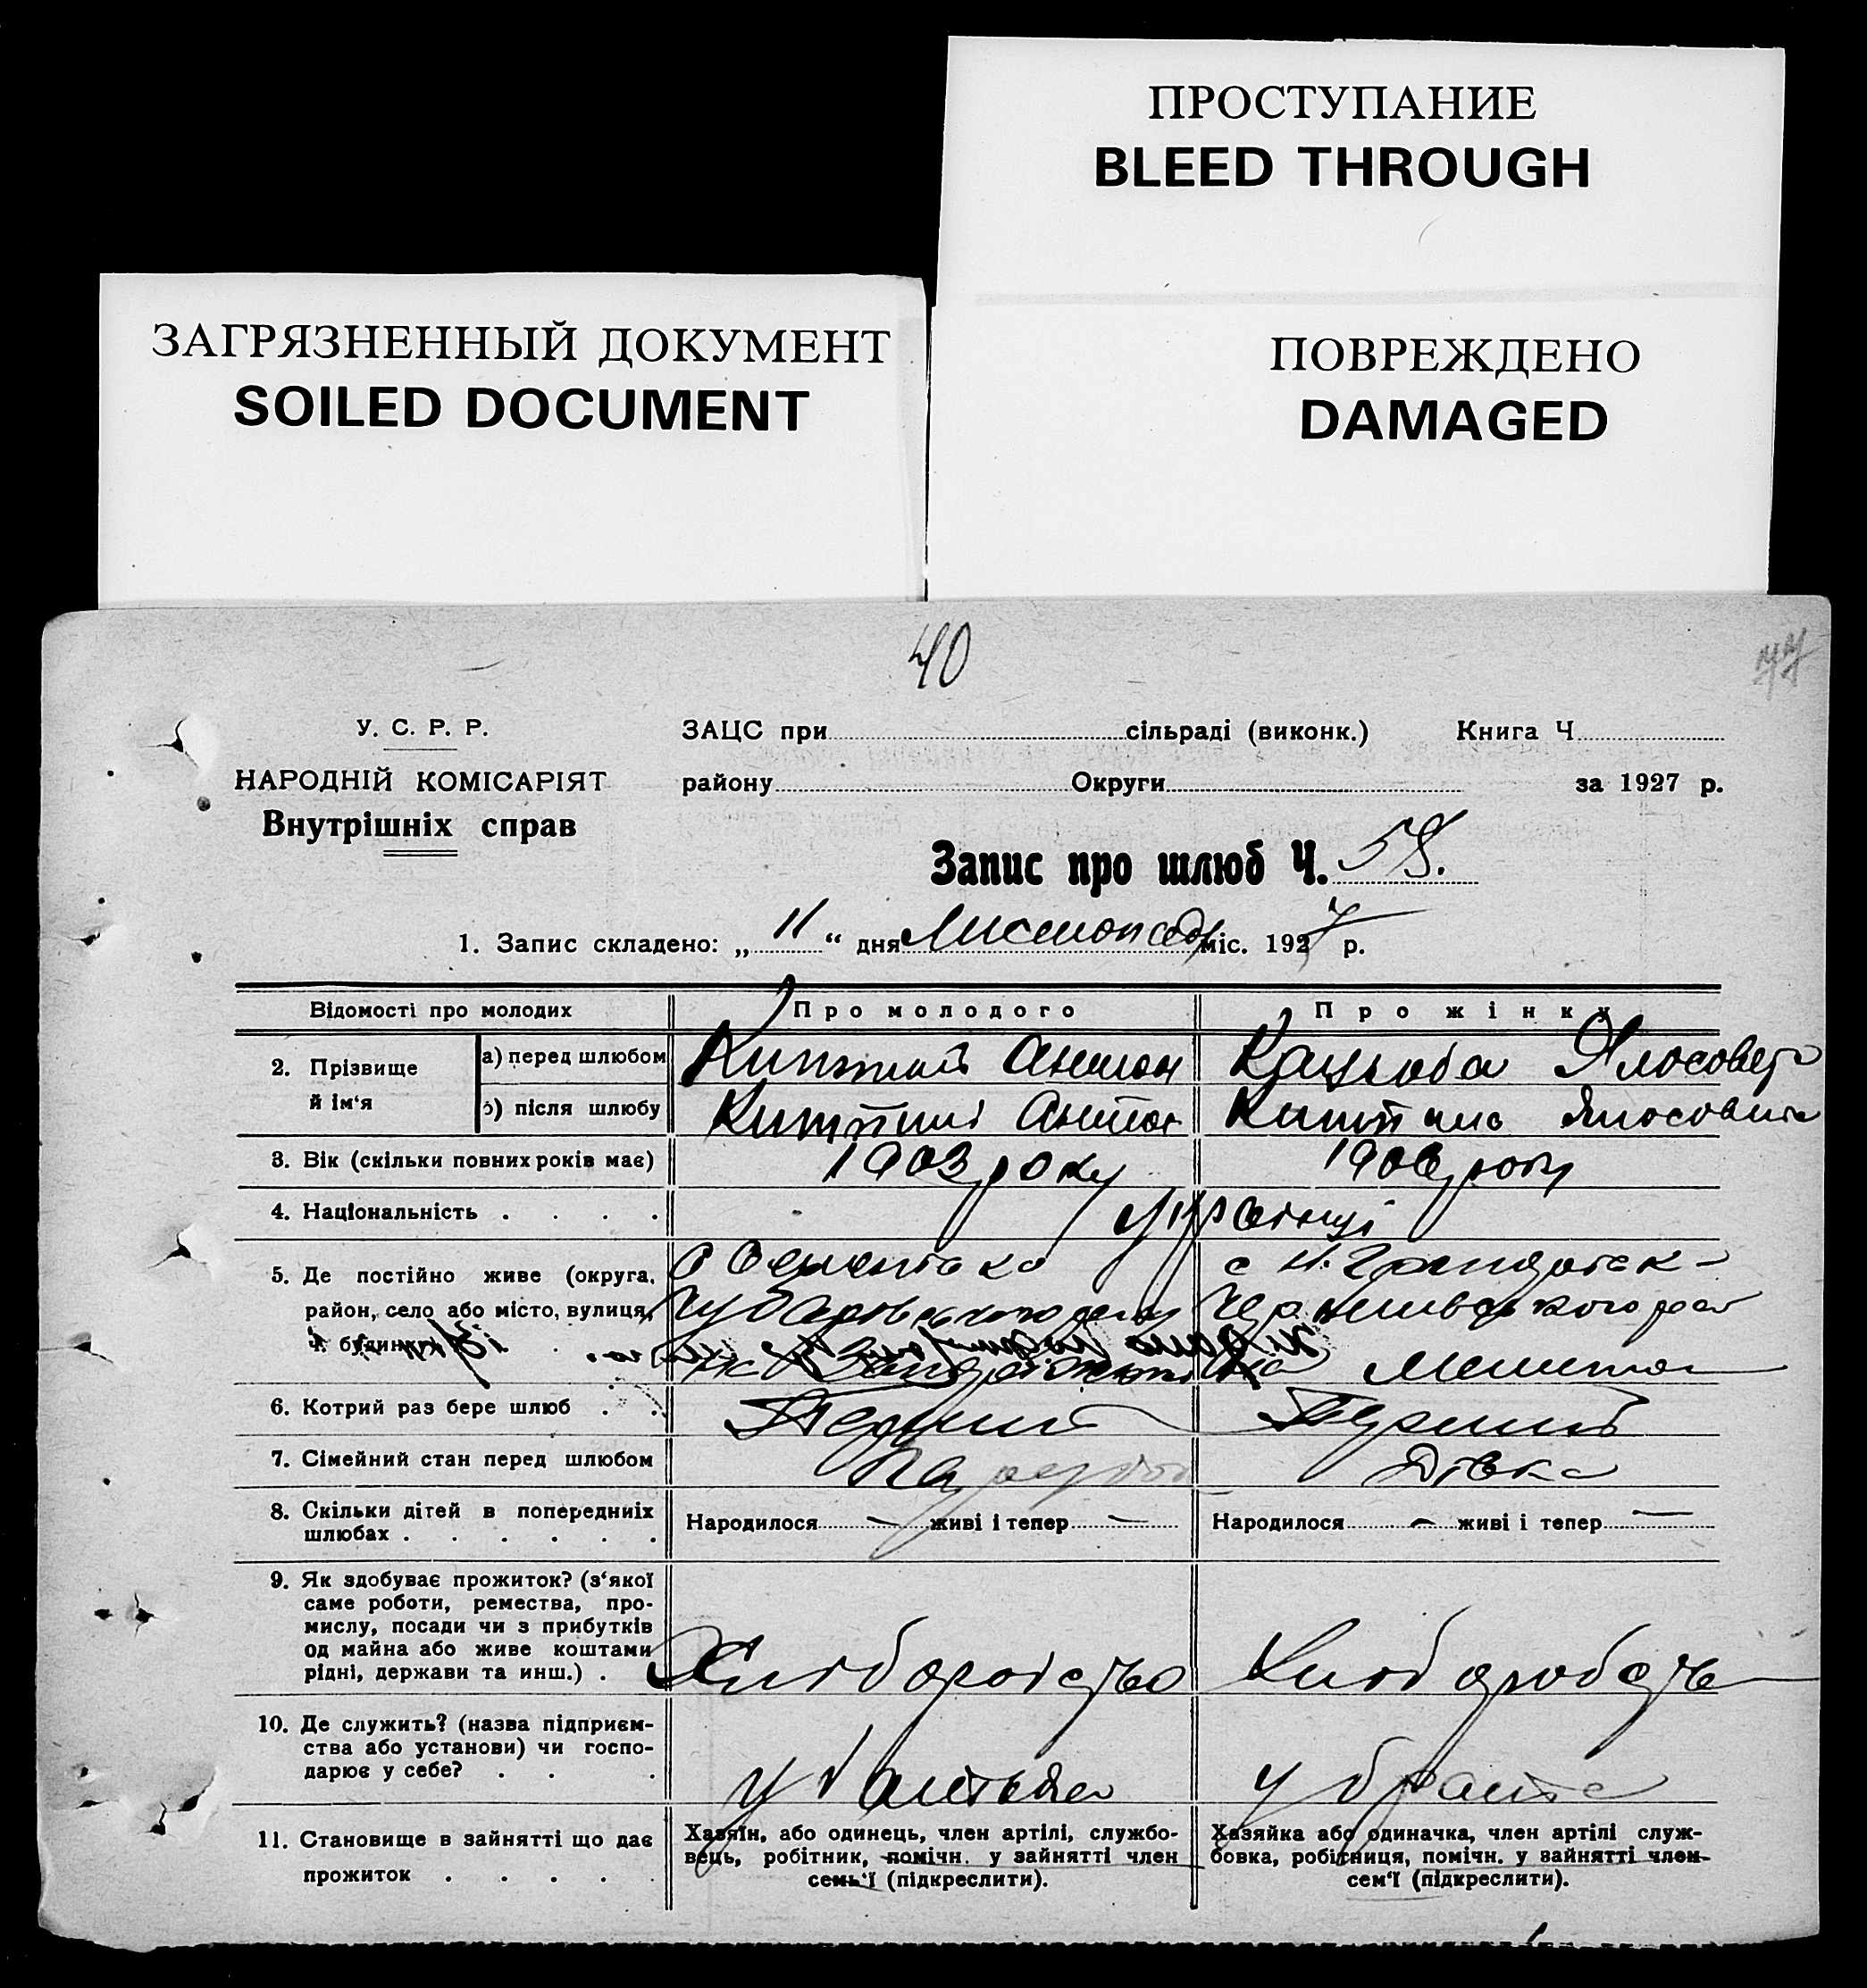 ПРОСТУПАНИЕ
BLEED THROUGH
ЗАГРЯЗНЕННЫЙ ДОКУМЕНТ
SOILED DOCUMENT
ПОВРЕЖДЕНО
DAMAGED
40
У. С. Р. Р.
НАРОДНІЙ КОМІСАРІЯТ
Внутрішніх справ
ЗАЦС при сільраді (виконк.) Книга Ч
району Округи за 1927 р.
Запис про шлюб Ч. 58.
1. Запис складено: „ 11 “ дня Листопада міс. 1927 р.
Відомості про молодих Про молодого Про жінку
2. Прізвище й ім‘я
а) перед шлюбом Антон
б) після шлюбу Антон
3. Вік (скільки повних років має) 1903 року 1906 року
4. Національність . . . . Українці
5. Де постійно живе (округа,
район, село або місто, вулиця,
ч. будинку)
6. Котрий раз бере шлюб . . Перший Перший
7. Сімейний стан перед шлюбом Парубок Дівка
8. Скільки дітей в попередніх
шлюбах . . . . . .
Народилося — живі і тепер — Народилося — живі і тепер —
9. Як здобуває прожиток? (з‘якої
саме роботи, ремества, про-
мислу, посади чи з прибутків
од майна або живе коштами
рідні, держави та инш.) .
Хліборобство Хліборобство
10. Де служить? (назва підприєм-
ства або установи) чи госпо-
дарює у себе? . . .
у батька у брата
11. Становище в зайнятті що дає
прожиток . . . . .
Хазяїн, або одинець, член артілі, службо-
вець, робітник, помічн. у зайнятті член
семь‘ї (підкреслити).
Хазяйка або одиначка, член артілі служ-
бовка, робітниця, помічн. у зайнятті член
сем‘ї (підкреслити).